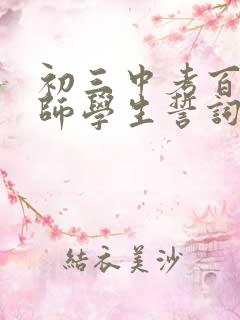 初三中考百
師學生誓詞
結衣美沙